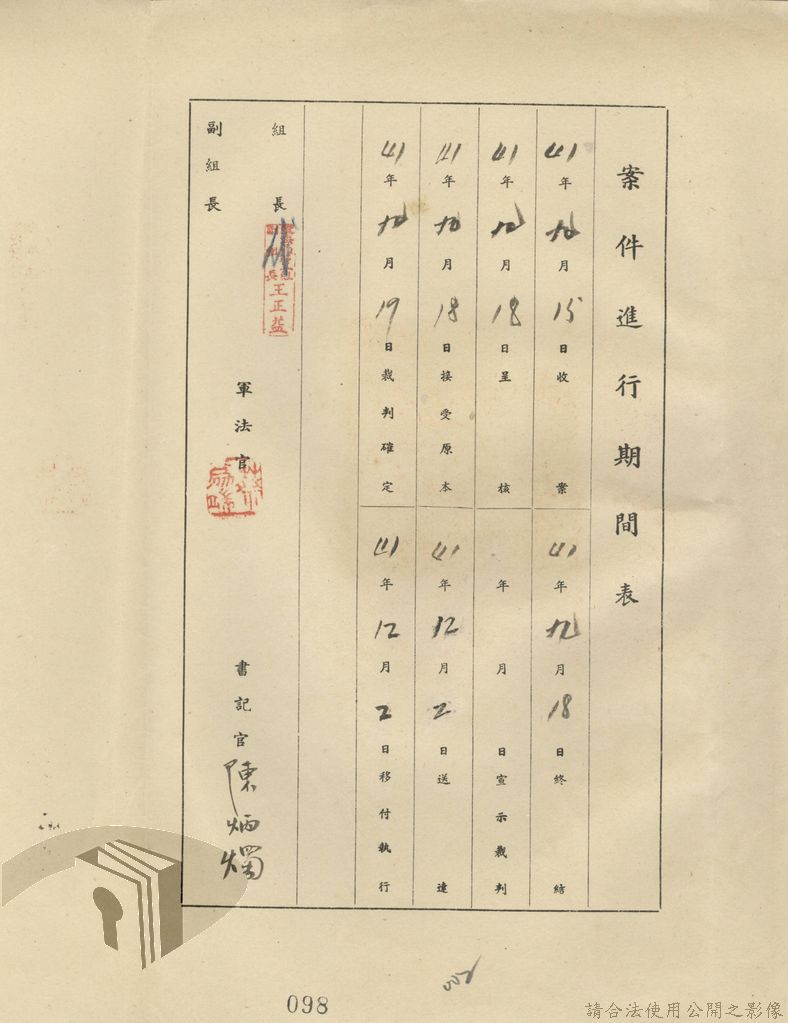 案件進行期間表
41年10月15日收案
41年12月18日終結
41年10月18日呈核
年 月 日宣示裁判
41年10月18日接受原本
41年12月2日送達
41年10月19日裁判確定
41年12月2日移付執行
組長
王正益
副組長
軍法官
書記官 陳炳燭
098
請合法使用公開之影像